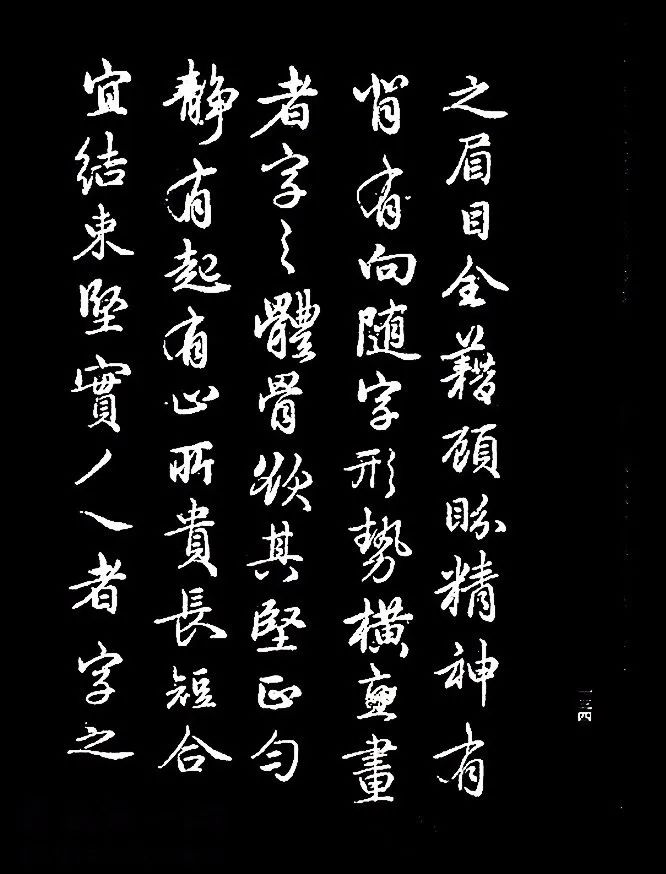 之眉目全藉顧盼精神有
背有向随字形勢橫直畫
者字之體骨欲其堅正勻
静有起有止所貴長短合
宜結束堅實丿乀者字之
一三四